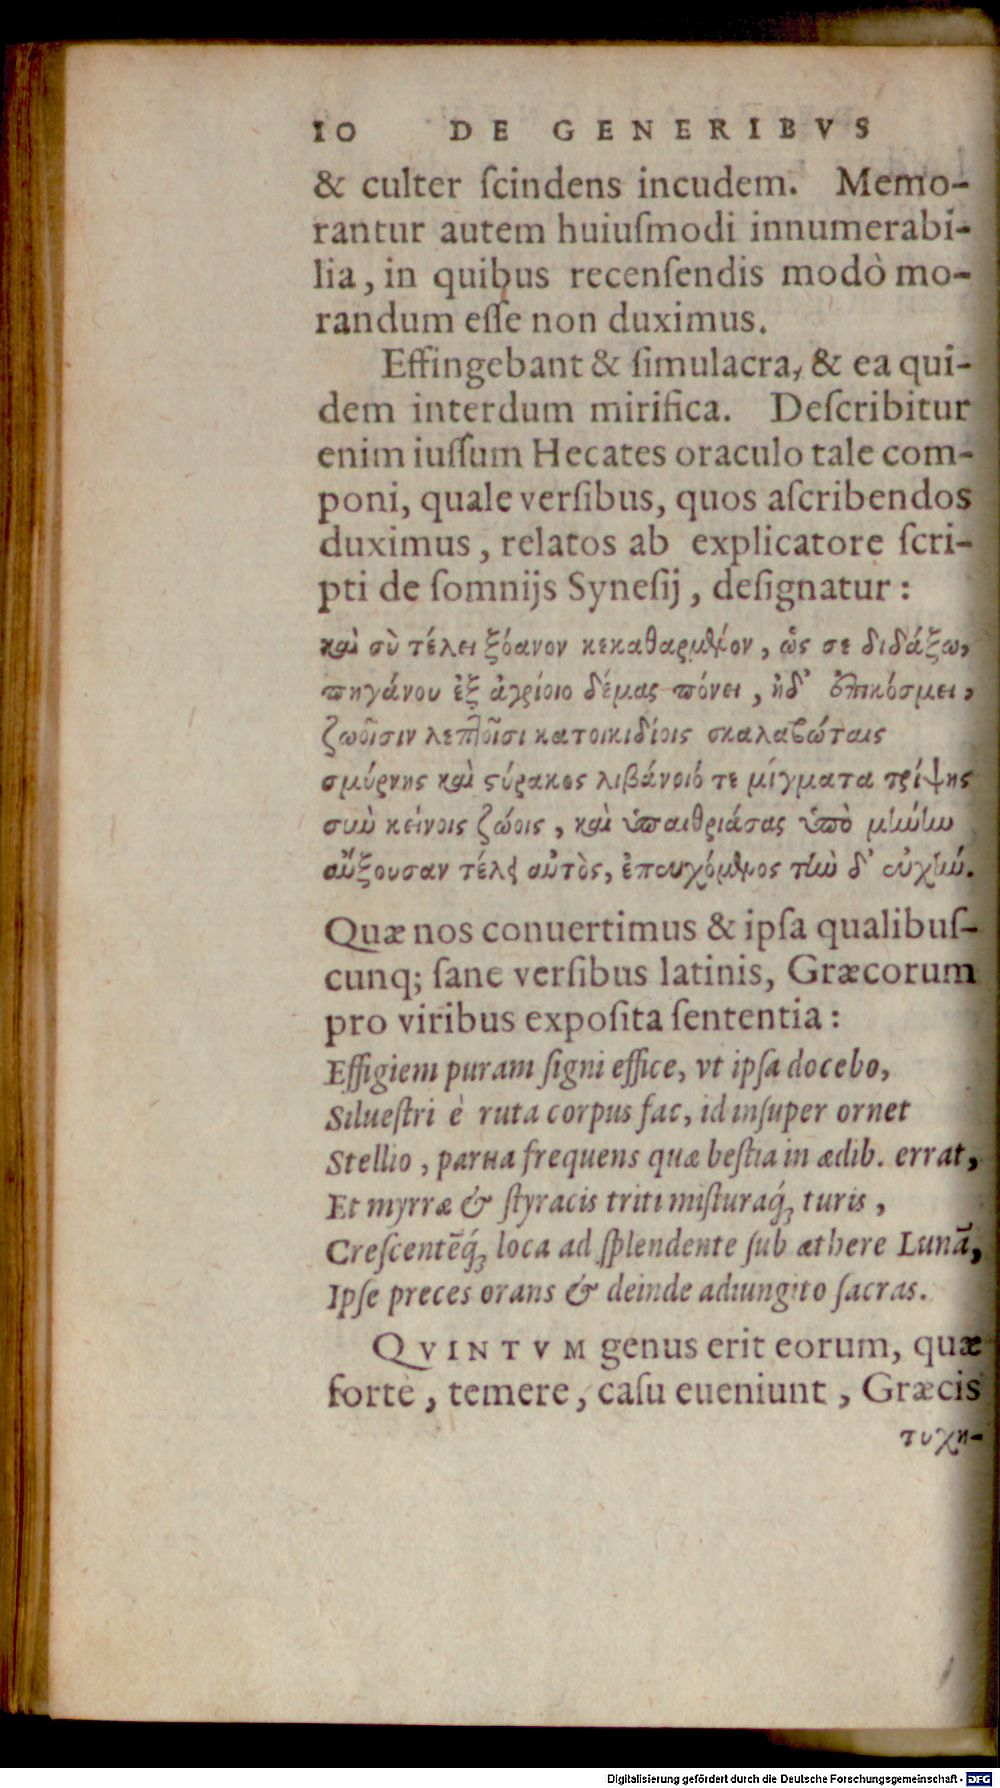 10 DE GENERIBVS
& culter ſcindens incudem. Memo-
rantur autem huiuſmodi innumerabi-
lia, in quibus recenſendis modò mo-
randum eſſe non duximus.
Effingebant & ſimulacra, & ea qui-
dem interdum mirifica. Deſcribitur
enim iuſſum Hecates oraculo tale com-
poni, quale verſibus, quos aſcribendos
duximus, relatos ab explicatore ſcri-
pti de ſomnijs Syneſij, deſignatur:
καὶ σὺ τέλει ξόανον κεκαθαρμένον, ὥς σε διδάξω,
πηγάνου ἐξ ἀγρίοιο δέμας πόνει, ἠδ' ἐπικόσμει,
ζωοῖσιν λεπτοῖσι κατοικιδίοις σκαλαβώταις
σμύρνης καὶ στύρακος λιβάνοιό τε μίγματα τρίψης
σὺν κείνοις ζώοις, καὶ ὑπαιθριάσας ὑπὸ μήνην
αὔξουσαν τέλει αὐτὸς, ἐπευχόμενος τὴν δ' εὐχήν.
Quæ nos conuertimus & ipſa qualibuſ-
cunq; ſane verſibus latinis, Græcorum
pro viribus expoſita ſententia:
Effigiem puram ſigni effice, vt ipſa docebo,
Silueſtri è ruta corpus fac, id inſuper ornet
Stellio, parua frequens quæ beſtia in ædib. errat,
Et myrræ & ſtyracis triti miſturaq́; turis,
Creſcentēq́; loca ad ſplendente ſub æthere Lunā,
Ipſe preces orans & deinde adiungito ſacras.
QVINTVM genus erit eorum, quæ
forte, temere, caſu eueniunt, Græcis
τυχη-
Digitalisierung gefördert durch die Deutsche Forschungsgemeinschaft - DFG